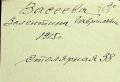 Васеева
Валентина Гавриловна
1915г.
Столярная 38